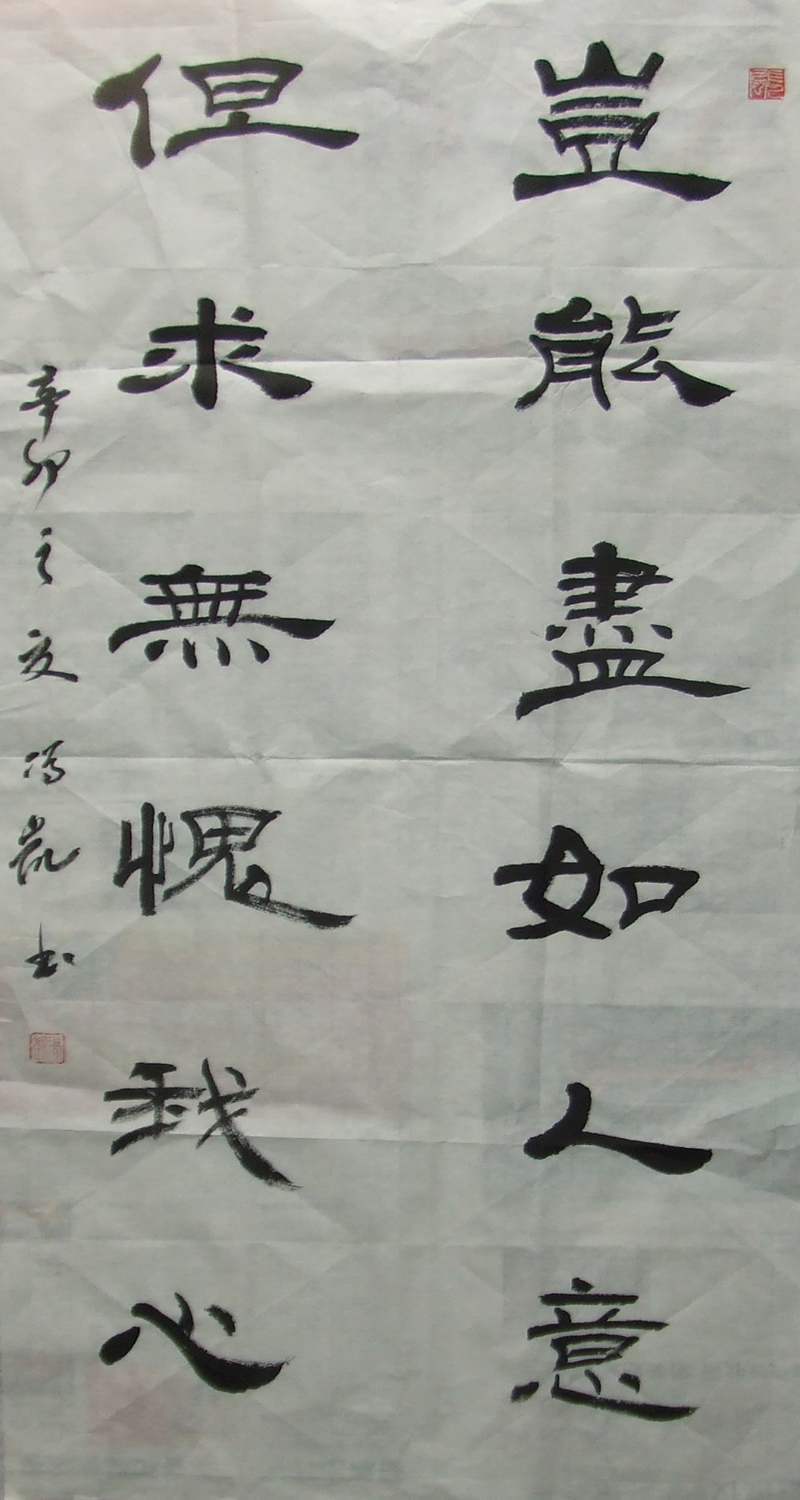 豈能盡如人意
但求無愧我心
辛卯之夏冯凯书